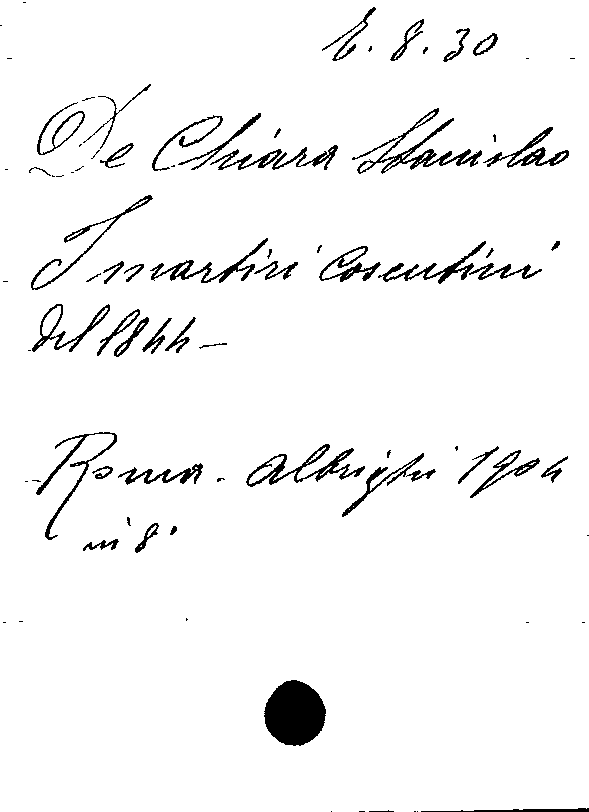 E. 8. 30
De Chiara Stanislao
I martiri Cosentini
del 1844 —
Roma. Albrighi 1904
in 8°